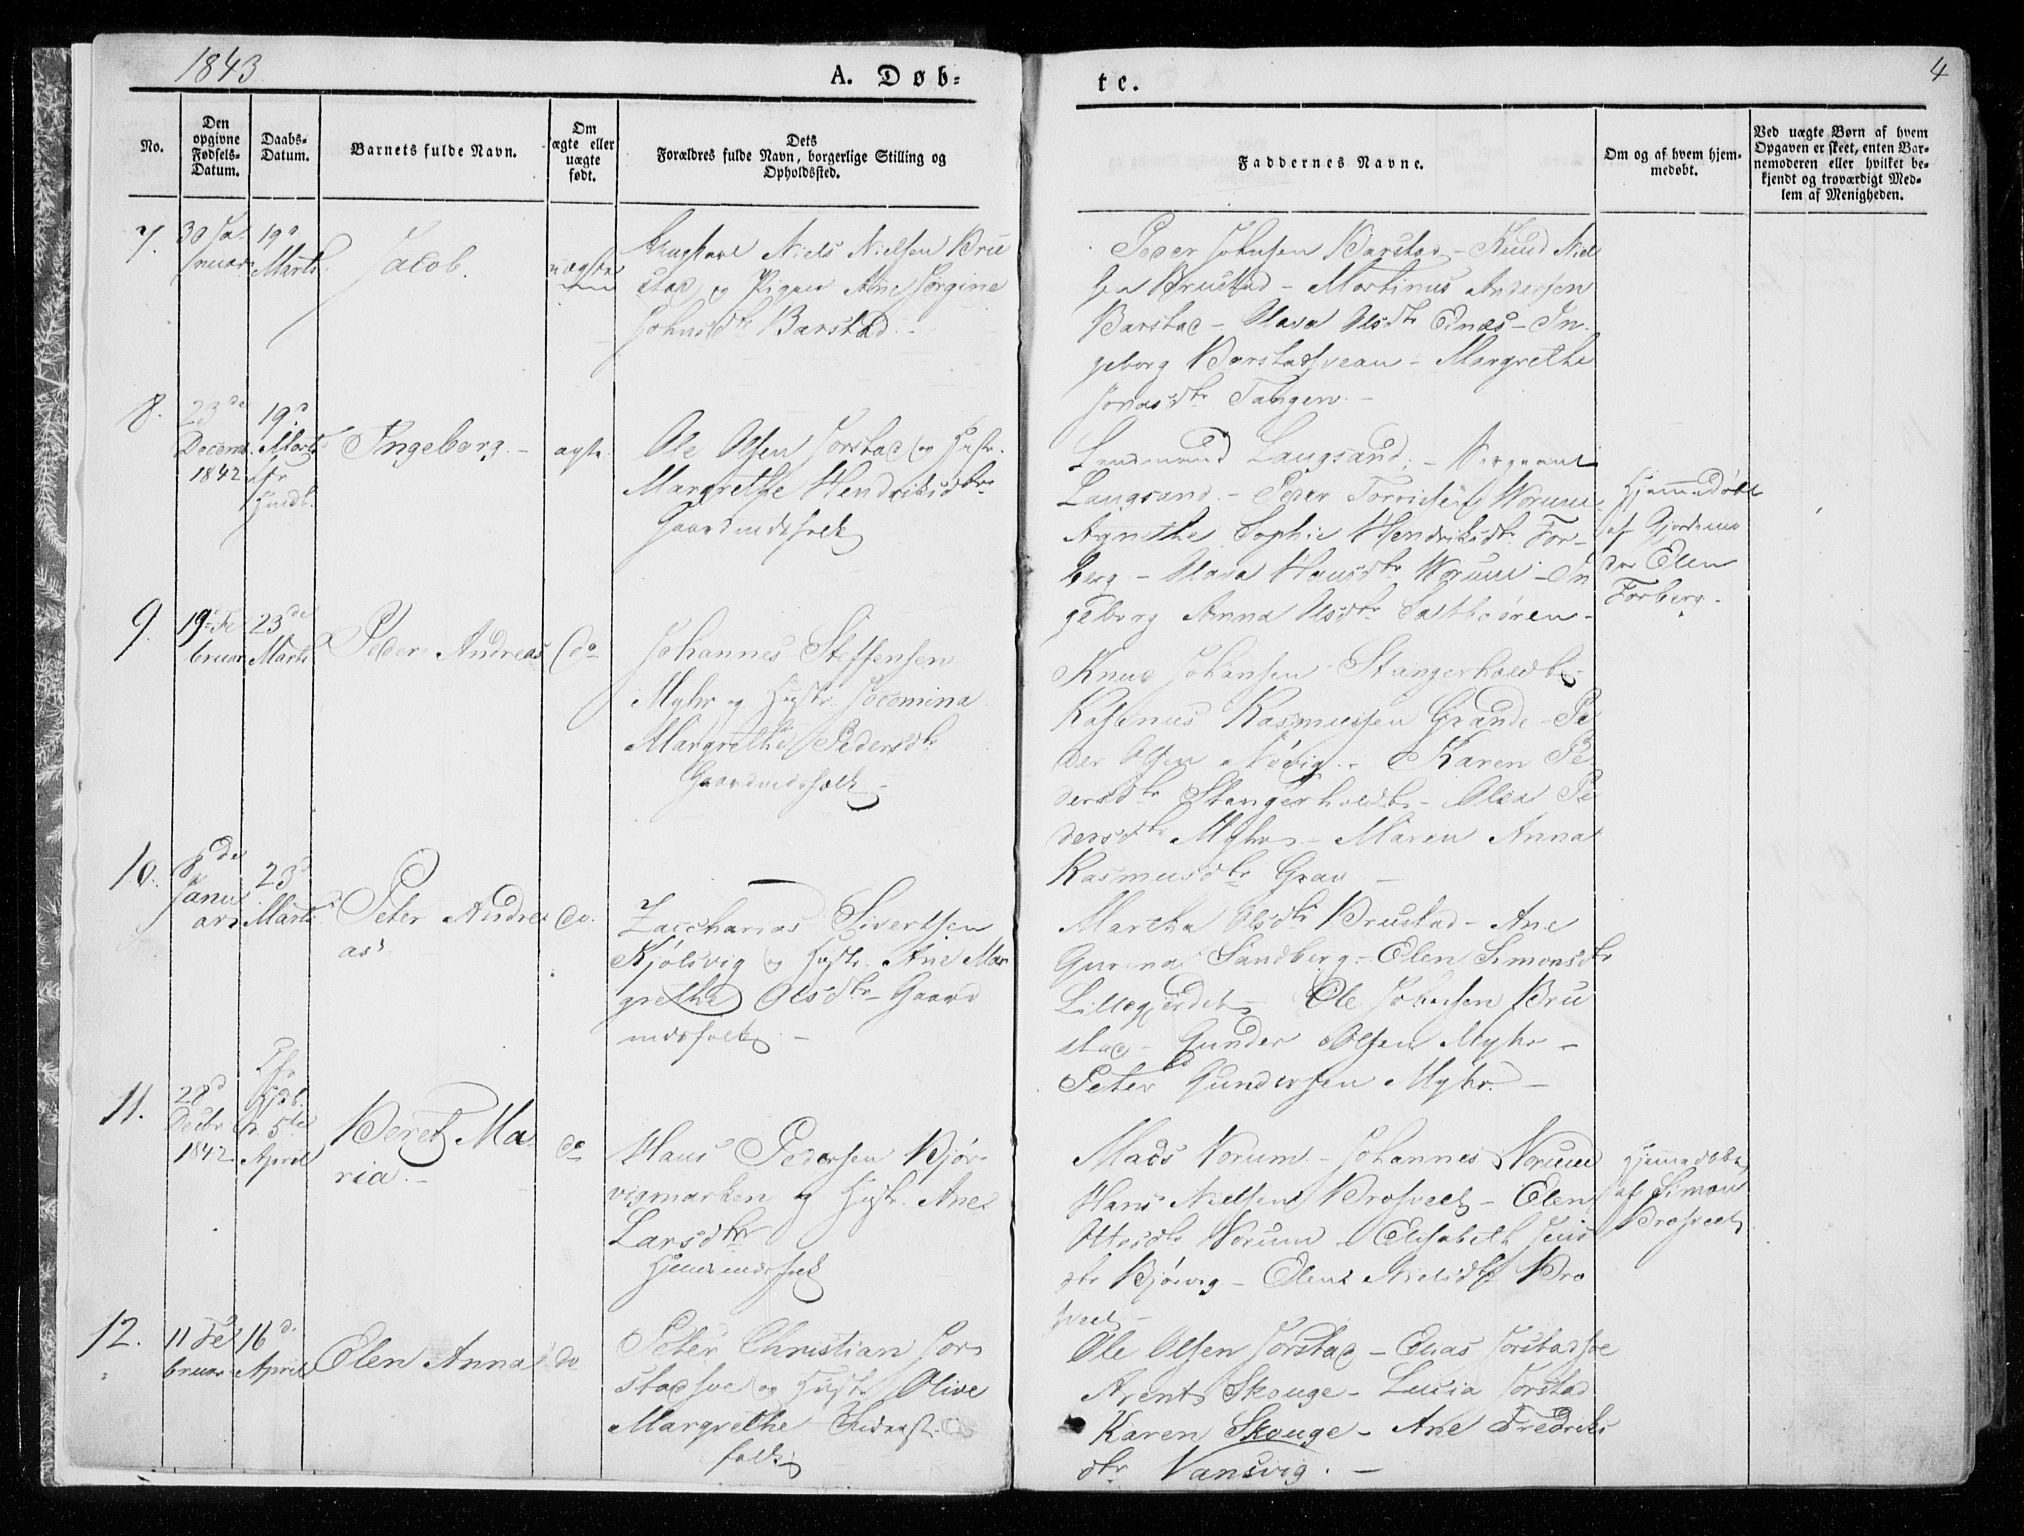 1843
A. Døb-
te.
4
No.
Den
opgivne
Fødsels-
Datum.
Daabs-
Datum.
Barnets fulde Navn.
Om
ægte eller
uægte
født.
Dets
Forældres fulde Navn, borgerlige Stilling og
Opholdssted.
Faddernes Navne.
Om og af hvem hjem-
medøbt.
Ved uægte Børn af hvem
Opgaven er skeet, enten Bar-
nemoderen eller hvilket be-
kjendt og troværdigt Med-
lem af Menigheden.
7.
30 Ja-
nuar
19d
Marts.
Jacob.
uægte
Ungkarl Niels Nielsen Bru
stad og Pigen Ane Jørgine
Johnsdtr Barstad -
Peder Johnsen Barstad - Knud Niel
sen Brustad - Martinus Andersen
Barstad - Olava Olsdtr Ednæs - In-
geborg Barstadsvean - Margrethe
Jonasdtr Tangen -
8.
23de
Decemb.
1842
19d
Marts
Ingeborg. -
ægte
Ole Olsen Jørstad og Hustr.
Margrethe Hendriksdtr
Gaardmdsfolk
Lensmand Laugsand. - Sergeant
Laugsand. - Peder Torrisen Worum
Agnethe Sophie Hendriksdtr For-
berg - Olava Hansdtr Worum - In
geborg Anna Olsdtr Saltbøren -
Hjemmedøbt
af Gjordemo
der Elen
Forberg.
9.
19 Fe
bruar
23de
Marts
Peder Andreas
do
Johannes Steffensen
Myhr og Hustr. Jocomina
Margrethe Pedersdtr
Gaardmdsfolk -
Knud Johansen Stangerholdt -
Rasmus Rasmussen Grande - Pe
der Olsen Nødvig. - Karen Pe
dersdtr Stangerholdt - Olea Pe
dersdtr Myhr - Maren Anna
Rasmusdtr Grav -
10.
8de
Janu
ari
23d
Marts
Peter Andre
as.
do.
Zaccharias Sivertsen
Kjølsvig og Hustr. Ane Mar
grethe Olsdtr - Gaard
mdsfolk -
Martha Olsdtr Brustad - Ane
Gurina Sandberg - Elen Simonsdtr
Lillegjerdet - Ole Johnsen Bru
stad - Gunder Olsen Myhr -
Peter Gundersen Myhr. -
11.
28d
Decbr
1842
5te
April
Beret Ma
ria. -
do
Hans Pedersen Bjør
vigmarken og Hustr. Ane
Larsdtr
Huusmdsfolk
Mads Vorum - Johannes Vorum
Hans Nielsen Brosveet - Elen
Ottesdtr Vorum - Elisabeth Jens
dtr Bjørvig - Elen Nielsdtr Bro
sveet -
Hjemmedøbt
af Simon
Brosveet
12.
11 Fe
bruar
16d.
April
Elen Anna
do
Peter Christian Jør
stadsve og Hustr Olive
Margrethe
folk
Ole Olsen Jørstad - Elias Jørstadsve
Arent Skouge - Lucia Jørstad
Karen Skouge - Ane Fredriks
dtr Vansvig. -